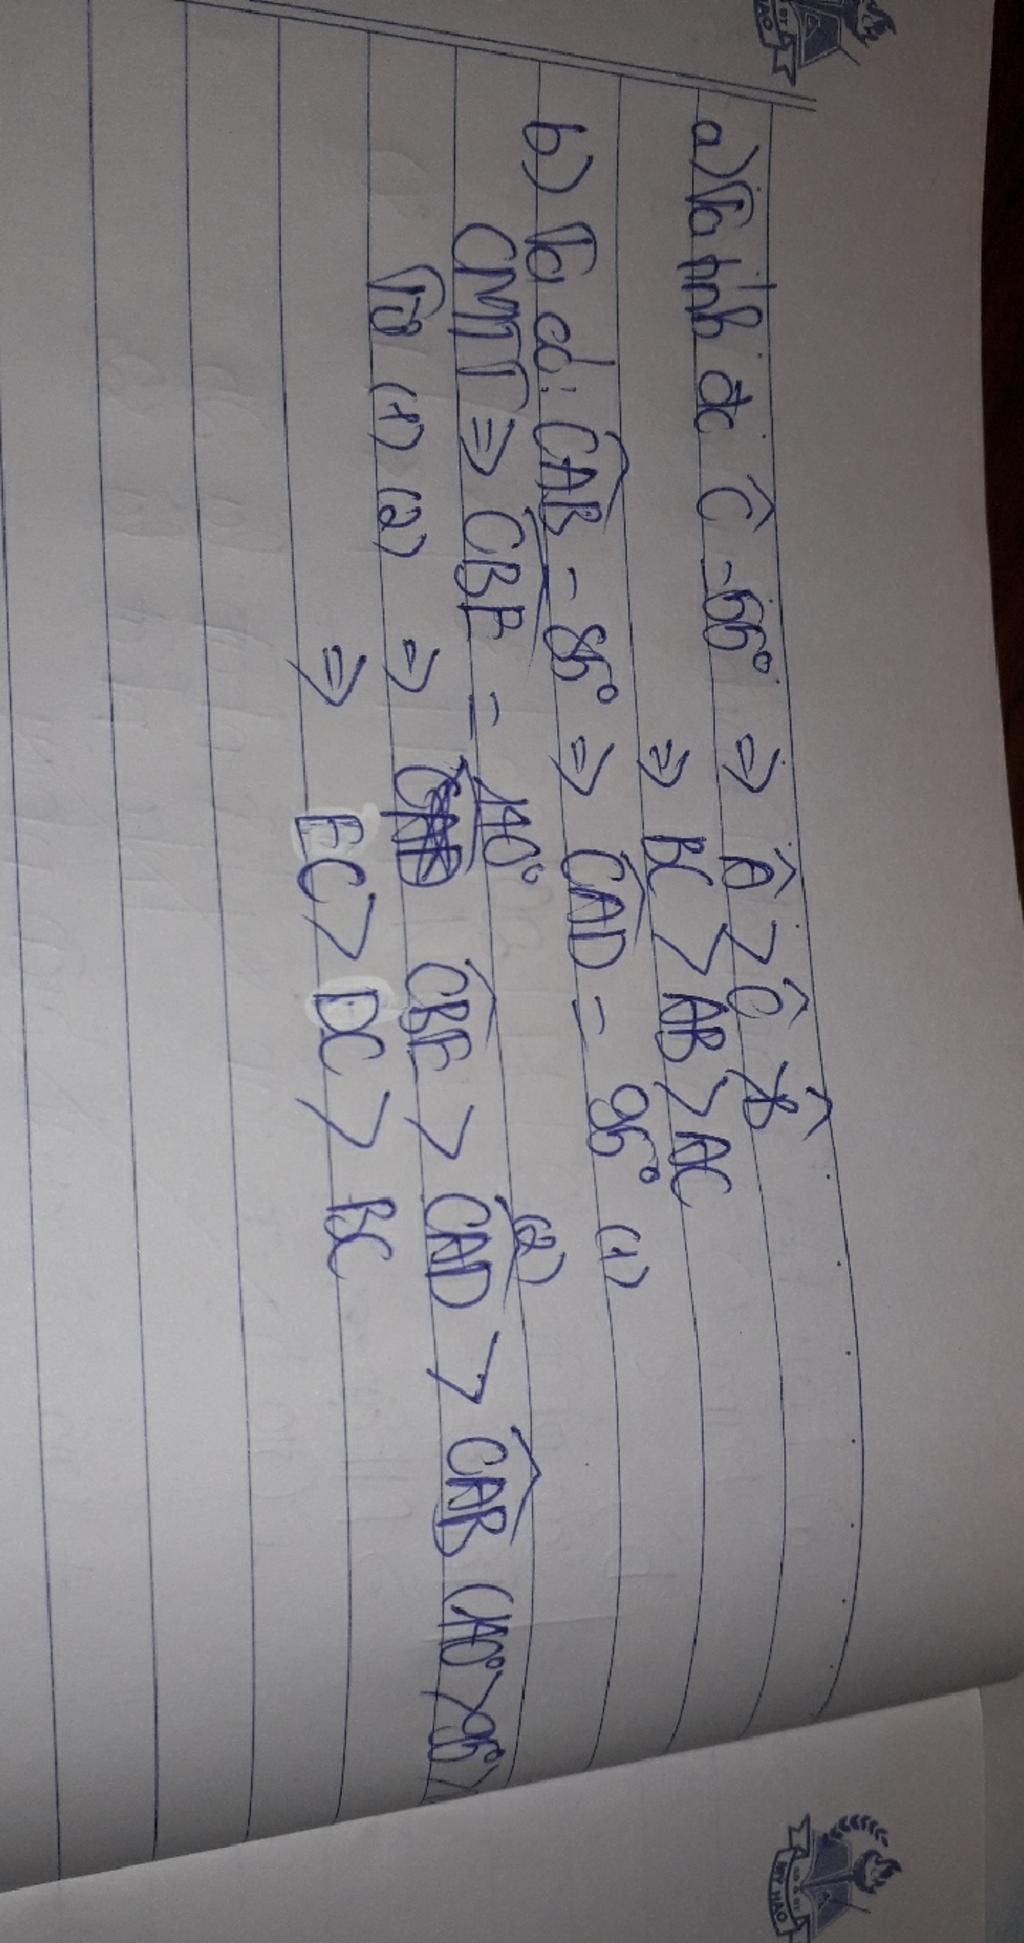 a) Ta tính đc Ĉ = 55° ⇒ Â > Ĉ > B̂
⇒ BC > AB > AC
b) Ta có: CAB = 85° ⇒ CAD = 95° (1)
CMT ⇒ CBE = 140° (2)
Từ (1) (2) ⇒ CBE > CAD > CAB (140° > 95° >
⇒ EC > DC > BC
MY HAO